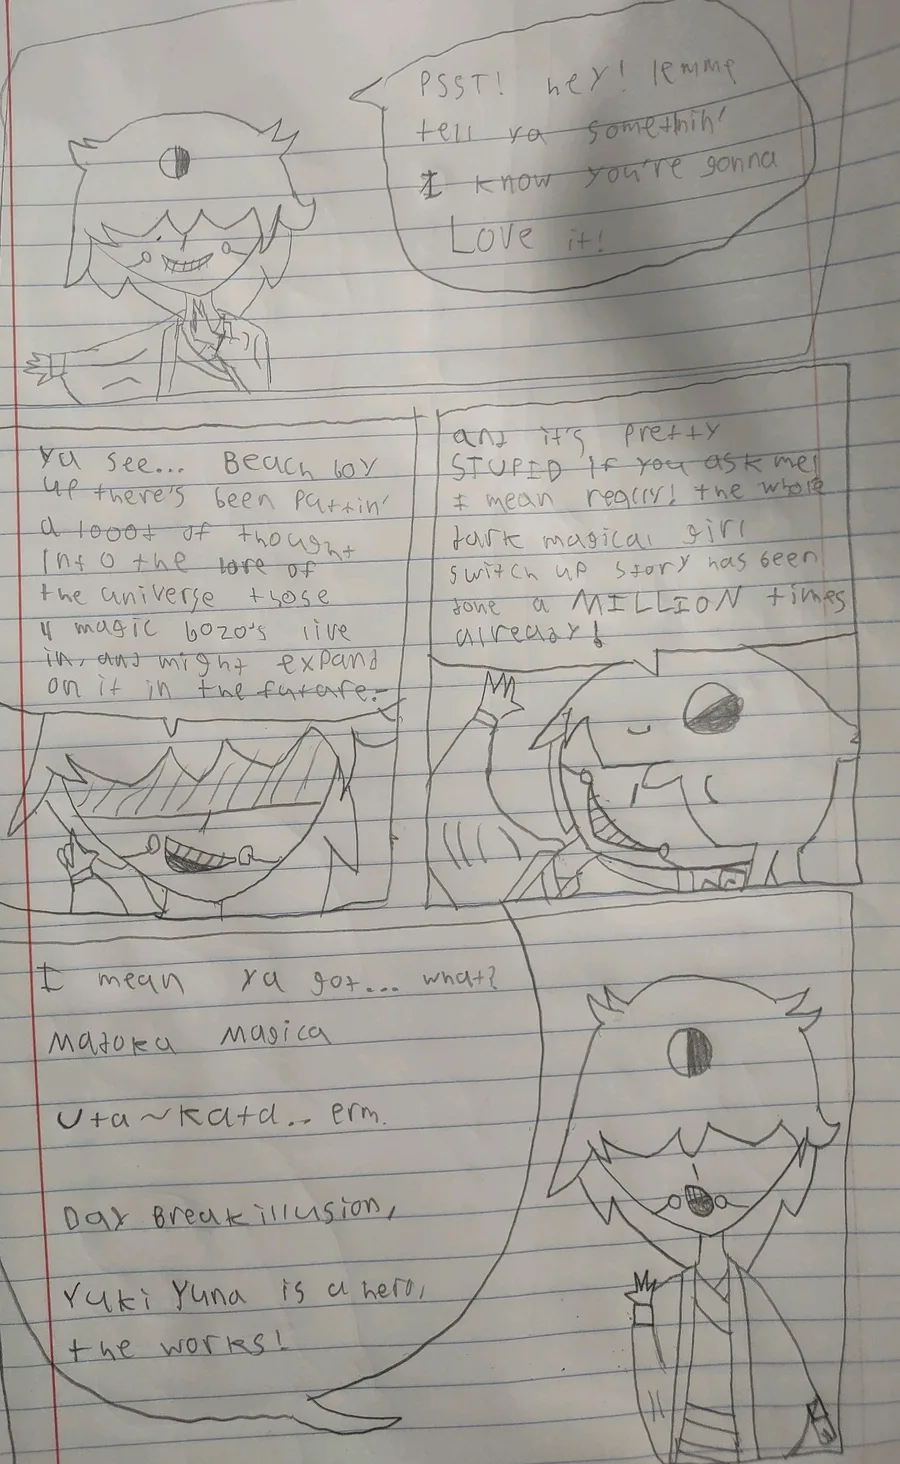 PSST! hey! lemme
tell ya somethin'
I know you're gonna
Love it!
Ya see... Beach boy
up there's been puttin'
a looot of thought
Into the lore of
the universe those
4 magic bozo's live
in, and might expand
on it in the future.
and it's pretty
STUPID if you ask me!
I mean really! the whole
dark magical girl
switch up story has been
done a MILLION times
already!
I mean ya got... what?
Madoka Magica
Uta~Kata.. erm.
Day Break illusion,
Yuki Yuna is a hero,
the works!